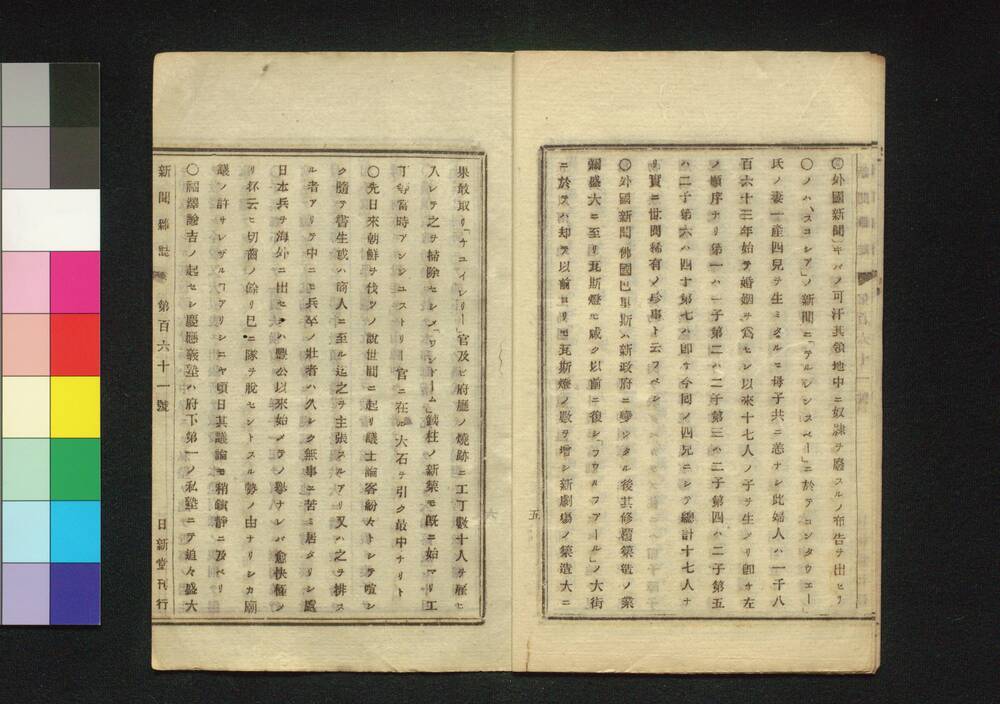 〇外國新聞ニキバノ可汗其領地中ニ奴隷ヲ廢スルノ布告ヲ出セリ
〇ノハスコシアノ新聞ニ於テコンタウエー
氏ノ妻一產四兒ヲ生ミタルモ母子共ニ恙ナシ此婦人ハ一千八
百六十三年始テ婚姻ヲ爲セシ以來十七人ノ子ヲ生メリ卽チ左
ノ順序ナリ第一ハ一子第二ハ二子第三ハ二子第四ハ二子第五
ハ二子第六ハ四子第七ハ卽チ今囘ノ四兒ニシテ總計十七人ナ
リ實ニ世間稀有ノ珍事ト云フベシ
〇外國新聞佛國巴里斯ハ新政府ニ變シタル後其修繕築造ノ業
爾盛大ニ至リ瓦斯燈モ咸ク以前ニ復シ「フウルフアール」ノ大街
ニ於テハ却テ以前ヨリモ瓦斯燈ノ數ヲ增シ新劇塲ノ築造大ニ
五
六
果敢取リ「チユイレリー」官及ビ府廳ノ燒跡ニ工丁數十人ヲ雇ヒ
入レテ之ヲ掃除セシメ「ワンドーム」鐵柱ノ新築モ旣ニ始マリ工
丁等當時アンジユストリー官ニ在ル大石ヲ引ク最中ナリト
〇先日來朝鮮ヲ伐ツノ說世間ニ起リ議士論客紛々トシテ喧シ
ク隨テ書生或ハ商人ニ至ル迄之ヲ主張スルアリ又ハ之ヲ排ス
ル者アリテ中ニモ兵卒ノ壯者ハ久シク無事ニ苦ミ居タリシ處
日本兵ヲ海外ニ出セシハ豐公以來始メテノ擧ナレバ愈快極レ
リ杯云ヒ切齒ノ餘リ已ニ隊ヲ脫セントスル勢ノ由ナリシカ廟
議ノ許サレザルコアリシニヤ頃日其議論モ稍鎭靜ニ及ベリ
〇福澤諭吉ノ起セシ慶應義塾ハ府下第一ノ私塾ニテ追々盛大
新聞雜誌 第百六十一號 日新堂刊行